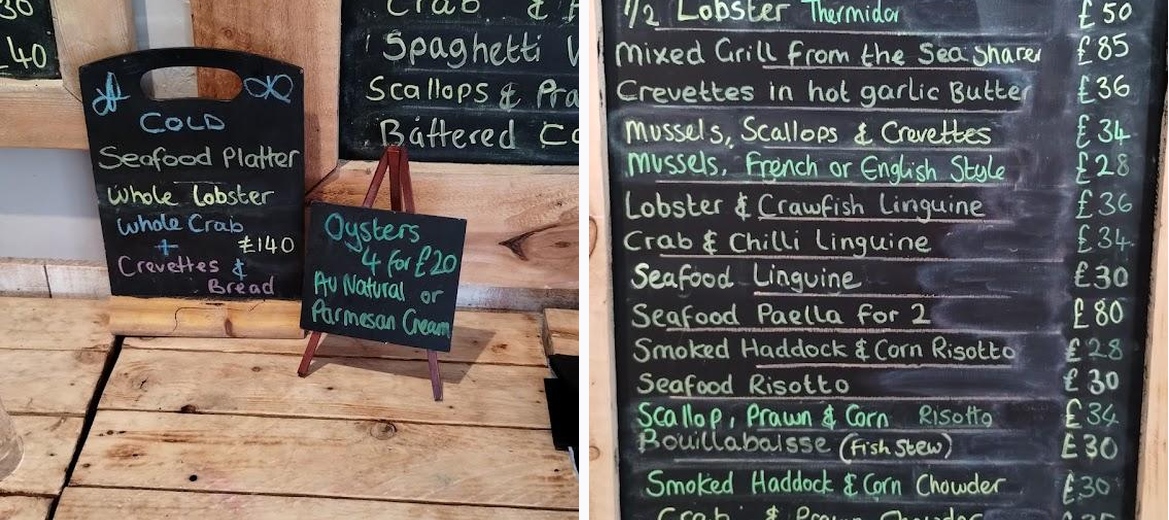 30
40
Crab &
Spaghetti
Scallops &
Battered
COLD
Seafood Platter
Whole Lobster
Whole Crab
+ £140
Crevettes &
Bread
Oysters
4 for £20
Au Natural or
Parmesan Cream
1/2 Lobster Thermidor £50
Mixed Grill from the Sea Sharer £85
Crevettes in hot garlic Butter £36
Mussels, Scallops & Crevettes £34
Mussels, French or English Style £28
Lobster & Crawfish Linguine £36
Crab & Chilli Linguine £34
Seafood Linguine £30
Seafood Paella for 2 £80
Smoked Haddock & Corn Risotto £28
Seafood Risotto £30
Scallop, Prawn & Corn Risotto £34
Bouillabaisse (Fish Stew) £30
Smoked Haddock & Corn Chowder £30
Crab & Prawn Chowder